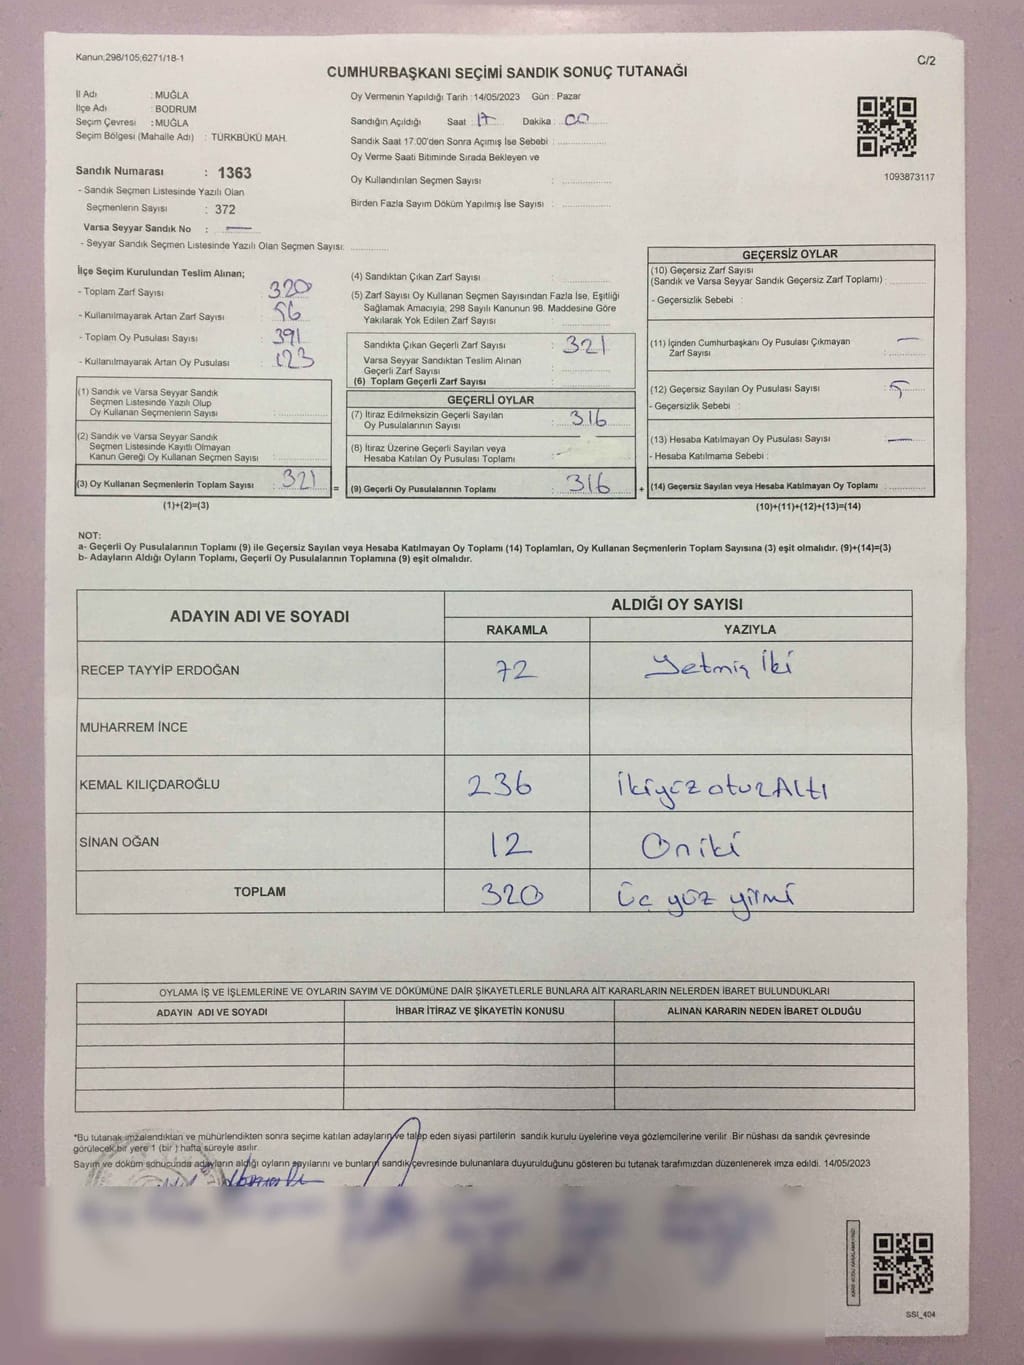 Kanun;298/105;6271/18-1
C/2
CUMHURBAŞKANI SEÇİMİ SANDIK SONUÇ TUTANAĞI
İl Adı : MUĞLA
İlçe Adı : BODRUM
Seçim Çevresi : MUĞLA
Seçim Bölgesi (Mahalle Adı) : TÜRKBÜKÜ MAH.
Sandık Numarası : 1363
- Sandık Seçmen Listesinde Yazılı Olan
Seçmenlerin Sayısı : 372
Varsa Seyyar Sandık No : —
- Seyyar Sandık Seçmen Listesinde Yazılı Olan Seçmen Sayısı:
Oy Vermenin Yapıldığı Tarih : 14/05/2023 Gün : Pazar
Sandığın Açıldığı Saat : 17 Dakika : 00
Sandık Saat 17:00'den Sonra Açımış İse Sebebi :
Oy Verme Saati Bitiminde Sırada Bekleyen ve
Oy Kullandırılan Seçmen Sayısı :
Birden Fazla Sayım Döküm Yapılmış İse Sayısı :
1093873117
İlçe Seçim Kurulundan Teslim Alınan;
- Toplam Zarf Sayısı : 320
- Kullanılmayarak Artan Zarf Sayısı : 56
- Toplam Oy Pusulası Sayısı : 391
- Kullanılmayarak Artan Oy Pusulası : 123
(1) Sandık ve Varsa Seyyar Sandık
Seçmen Listesinde Yazılı Olup
Oy Kullanan Seçmenlerin Sayısı :
(2) Sandık ve Varsa Seyyar Sandık
Seçmen Listesinde Kayıtlı Olmayan
Kanun Gereği Oy Kullanan Seçmen Sayısı :
(3) Oy Kullanan Seçmenlerin Toplam Sayısı : 321 =
(1)+(2)=(3)
(4) Sandıktan Çıkan Zarf Sayısı :
(5) Zarf Sayısı Oy Kullanan Seçmen Sayısından Fazla İse, Eşitliği
Sağlamak Amacıyla, 298 Sayılı Kanunun 98. Maddesine Göre
Yakılarak Yok Edilen Zarf Sayısı :
Sandıkta Çıkan Geçerli Zarf Sayısı : 321
Varsa Seyyar Sandıktan Teslim Alınan
Geçerli Zarf Sayısı :
(6) Toplam Geçerli Zarf Sayısı :
GEÇERLİ OYLAR
(7) İtiraz Edilmeksizin Geçerli Sayılan
Oy Pusulalarının Sayısı : 316
(8) İtiraz Üzerine Geçerli Sayılan veya
Hesaba Katılan Oy Pusulası Toplamı :
(9) Geçerli Oy Pusulalarının Toplamı : 316 +
GEÇERSİZ OYLAR
(10) Geçersiz Zarf Sayısı
(Sandık ve Varsa Seyyar Sandık Geçersiz Zarf Toplamı) :
- Geçersizlik Sebebi :
(11) İçinden Cumhurbaşkanı Oy Pusulası Çıkmayan
Zarf Sayısı : —
(12) Geçersiz Sayılan Oy Pusulası Sayısı : 5
- Geçersizlik Sebebi :
(13) Hesaba Katılmayan Oy Pusulası Sayısı : —
- Hesaba Katılmama Sebebi :
(14) Geçersiz Sayılan veya Hesaba Katılmayan Oy Toplamı :
(10)+(11)+(12)+(13)=(14)
NOT:
a- Geçerli Oy Pusulalarının Toplamı (9) ile Geçersiz Sayılan veya Hesaba Katılmayan Oy Toplamı (14) Toplamları, Oy Kullanan Seçmenlerin Toplam Sayısına (3) eşit olmalıdır. (9)+(14)=(3)
b- Adayların Aldığı Oyların Toplamı, Geçerli Oy Pusulalarının Toplamına (9) eşit olmalıdır.
ADAYIN ADI VE SOYADI
ALDIĞI OY SAYISI
RAKAMLA YAZIYLA
RECEP TAYYİP ERDOĞAN 72 Yetmiş İki
MUHARREM İNCE
KEMAL KILIÇDAROĞLU 236 İkiyüzotuzAltı
SİNAN OĞAN 12 Oniki
TOPLAM 320 Üç yüz yirmi
OYLAMA İŞ VE İŞLEMLERİNE VE OYLARIN SAYIM VE DÖKÜMÜNE DAİR ŞİKAYETLERLE BUNLARA AİT KARARLARIN NELERDEN İBARET BULUNDUKLARI
ADAYIN ADI VE SOYADI İHBAR İTİRAZ VE ŞİKAYETİN KONUSU ALINAN KARARIN NEDEN İBARET OLDUĞU
*Bu tutanak imzalandıktan ve mühürlendikten sonra seçime katılan adayların ve talep eden siyasi partilerin sandık kurulu üyelerine veya gözlemcilerine verilir. Bir nüshası da sandık çevresinde
görülecek bir yere 1 (bir) hafta süreyle asılır.
Sayım ve döküm sonucunda adayların aldığı oyların sayılarını ve bunların sandık çevresinde bulunanlara duyurulduğunu gösteren bu tutanak tarafımızdan düzenlenerek imza edildi. 14/05/2023
SSI_404